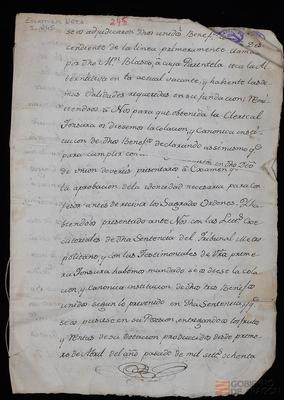 245
se os adjudicaron dhos unidos Benef.
cendiente de la linea primeramente llama
por dho M.n Blasco, a cuya Parentela toca la
en la actual vacante, y haverse las de
mas calidades requeridas en su fundacion,
a Nos para que obtenida la Clerical
Tonsura os diesemos la colacion, y Canonica insti
tucion de dhos Benef.s declarando assimismo q.
para cumplir con
de union deverèis presentaros a Examen y
la aprobacion de la idoneidad necesaria para
antes de recivir los Sagrados Ordenes.
biendoos presentado ante Nos con las Letras
de dha Sentencia del Tribunal Metro
politano, y con las Testimoniales de dha prime
ra Tonsura habemos mandado se os diese la cola
cion, y Canonica institucion de dhos tres Benef.s
unidos segun lo prevenido en dha Sentencia, y q.
se os pusiese en su Posesion, entregandoos los frutos
y Rentas de su Dotacion producidos desde prime
ro de Abril del año pasado de mil sett.s ochenta
GOBIERNO
DE ARAGON